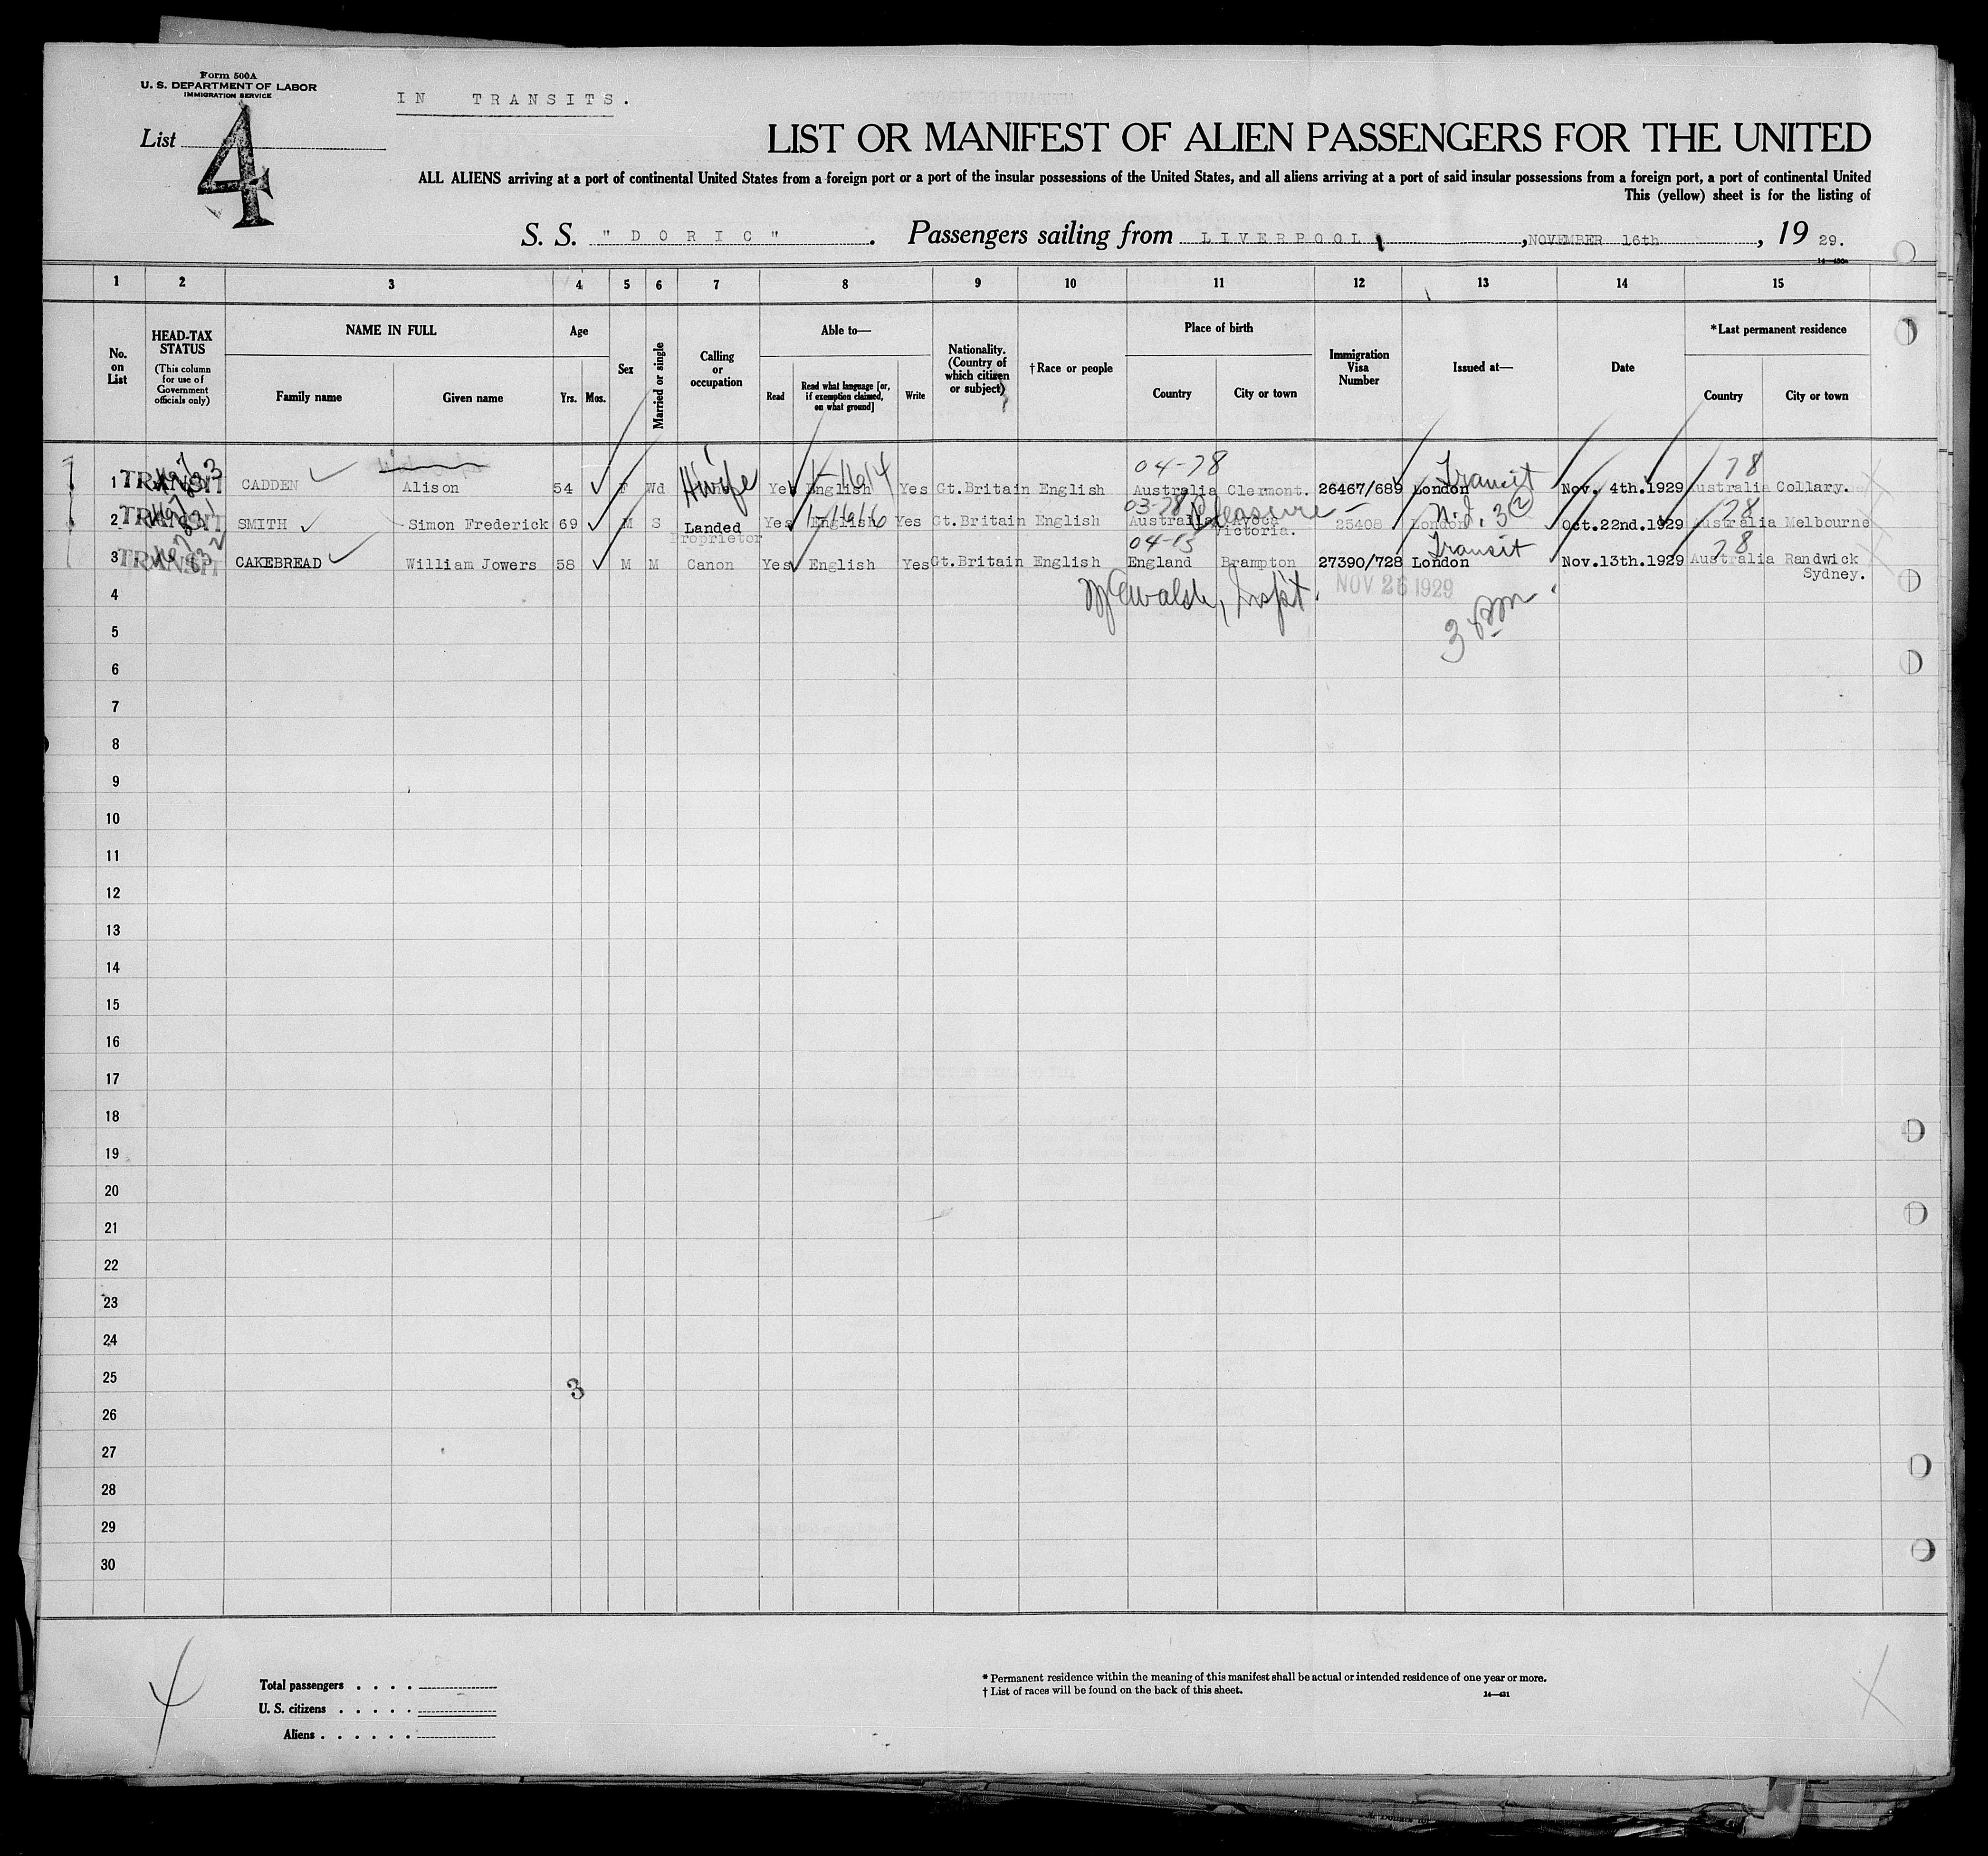 Form 500A
U. S. DEPARTMENT OF LABOR
IMMIGRATION SERVICE
IN TRANSITS.
List 4
LIST OR MANIFEST OF ALIEN PASSENGERS FOR THE UNITED
ALL ALIENS arriving at a port of continental United States from a foreign port or a port of the insular possessions of the United States, and all aliens arriving at a port of said insular possessions from a foreign port, a port of continental United
This (yellow) sheet is for the listing of
S. S. "DORIC". Passengers sailing from LIVERPOOL, NOVEMBER 16th, 19 29.
1 2 3 4 5 6 7 8 9 10 11 12 13 14 15
No. on List
HEAD-TAX STATUS
(This column for use of Government officials only)
NAME IN FULL
Family name Given name
Age
Yrs. Mos.
Sex
Married or single
Calling or occupation
Able to—
Read
Read what language [or, if exemption claimed, on what ground]
Write
Nationality. (Country of which citizen or subject)
†Race or people
Place of birth
Country City or town
Immigration Visa Number
Issued at—
Date
*Last permanent residence
Country City or town
04-78 Transit 78
1 TRANSIT CADDEN Alison 54 F Wd H'wife Yes English 1-1614 Yes Gt.Britain English Australia Clermont. 26467/689 London Nov. 4th.1929 Australia Collary.
03-78 Pleasure 78
2 TRANSIT SMITH Simon Frederick 69 M S Landed Proprietor Yes English 1-1616 Yes Gt.Britain English Australia Avoca Victoria. 25408 London 3(2) Oct.22nd.1929 Australia Melbourne
04-13 Transit 78
3 TRANSIT CAKEBREAD William Jowers 58 M M Canon Yes English Yes Gt.Britain English England Brampton 27390/728 London Nov.13th.1929 Australia Randwick Sydney.
4 Inspt. NOV 26 1929
3 pm.
5
6
7
8
9
10
11
12
13
14
15
16
17
18
19
20
21
22
23
24
25
3
26
27
28
29
30
Total passengers
U. S. citizens
Aliens
* Permanent residence within the meaning of this manifest shall be actual or intended residence of one year or more.
† List of races will be found on the back of this sheet.
14—431